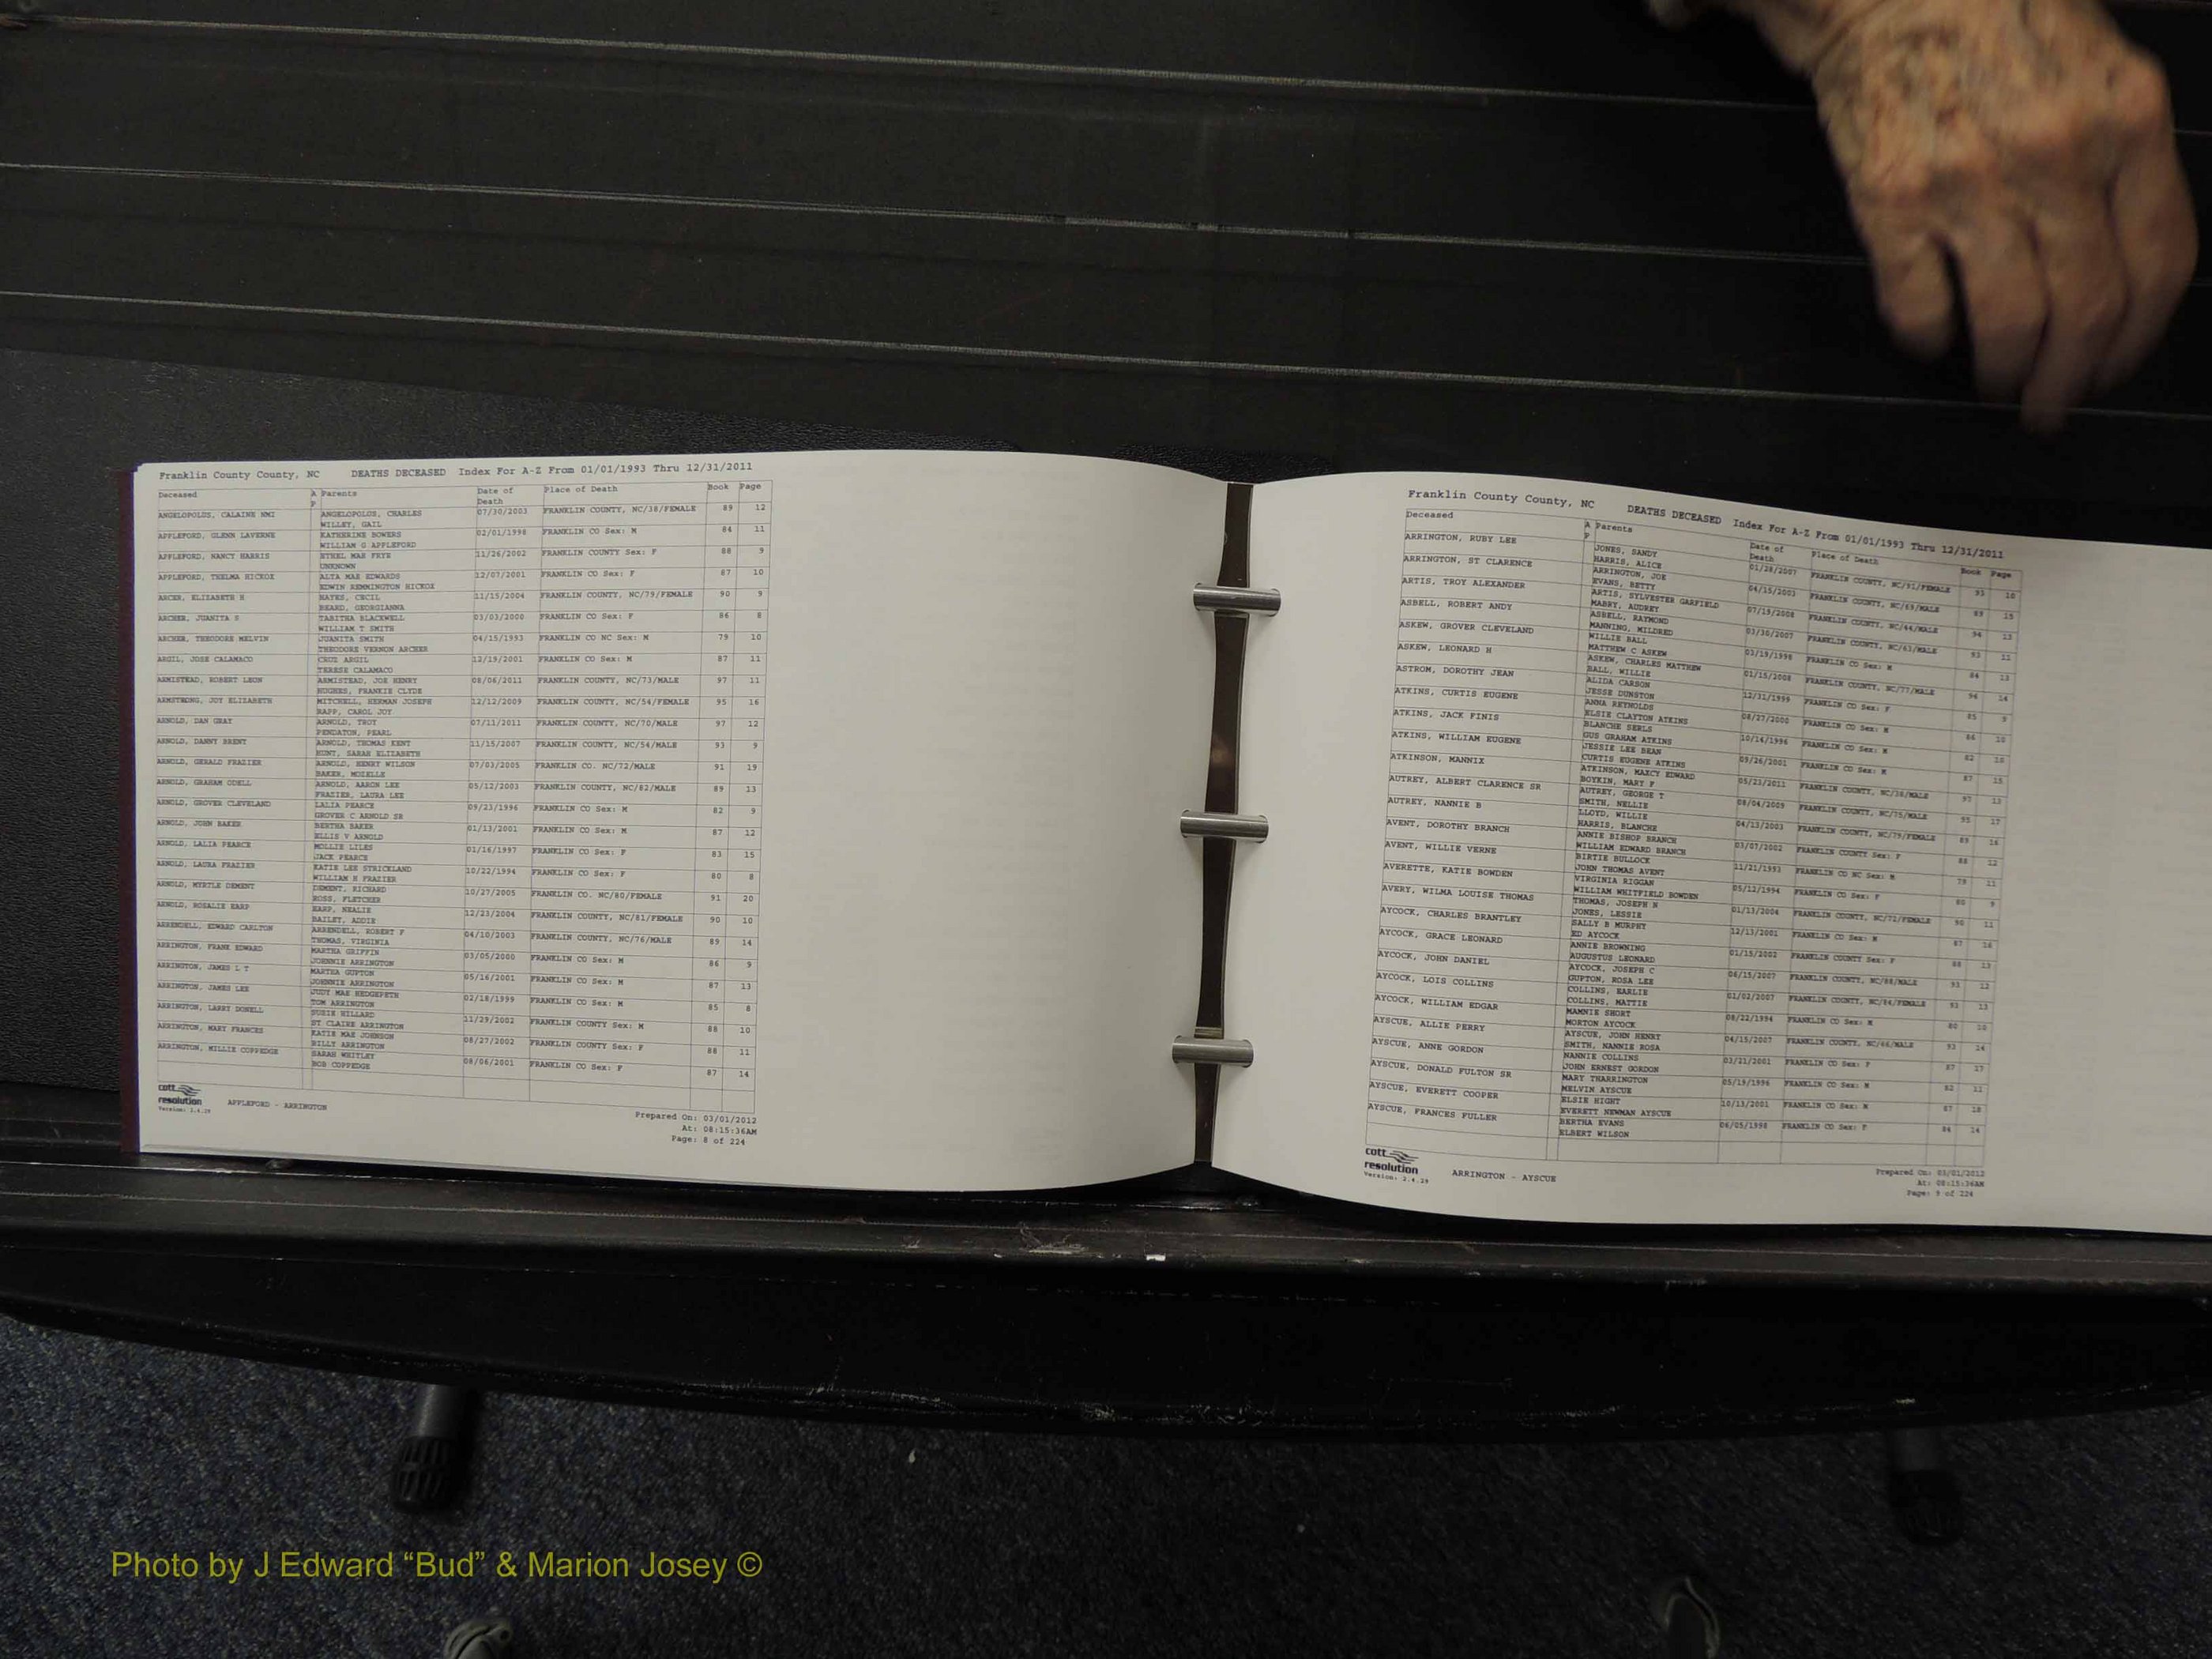 Franklin County County, NC DEATHS DECEASED Index For A-Z From 01/01/1993 Thru 12/31/2011
Deceased A Parents Date of Place of Death Book Page
P Death
ANGELOPOLUS, CALAINE NMI ANGELOPOLUS, CHARLES 07/30/2003 FRANKLIN COUNTY, NC/38/FEMALE 89 12
WILLEY, GAIL
APPLEFORD, GLENN LAVERNE KATHERINE BOWERS 02/01/1998 FRANKLIN CO Sex: M 84 11
WILLIAM G APPLEFORD
APPLEFORD, NANCY HARRIS ETHEL MAE FRYE 11/26/2002 FRANKLIN COUNTY Sex: F 88 9
UNKNOWN
APPLEFORD, THELMA HICKOX ALTA MAE EDWARDS 12/07/2001 FRANKLIN CO Sex: F 87 10
EDWIN REMMINGTON HICKOX
ARCER, ELIZABETH H HAYES, CECIL 11/15/2004 FRANKLIN COUNTY, NC/79/FEMALE 90 9
BEARD, GEORGIANNA
ARCHER, JUANITA S TABITHA BLACKWELL 03/03/2000 FRANKLIN CO Sex: F 86 8
WILLIAM T SMITH
ARCHER, THEODORE MELVIN JUANITA SMITH 04/15/1993 FRANKLIN CO NC Sex: M 79 10
THEODORE VERNON ARCHER
ARGIL, JOSE CALAMACO CRUZ ARGIL 12/19/2001 FRANKLIN CO Sex: M 87 11
TERESE CALAMACO
ARMISTEAD, ROBERT LEON ARMISTEAD, JOE HENRY 08/06/2011 FRANKLIN COUNTY, NC/73/MALE 97 11
HUGHES, FRANKIE CLYDE
ARMSTRONG, JOY ELIZABETH MITCHELL, HERMAN JOSEPH 12/12/2009 FRANKLIN COUNTY, NC/54/FEMALE 95 16
RAPP, CAROL JOY
ARNOLD, DAN GRAY ARNOLD, TROY 07/11/2011 FRANKLIN COUNTY, NC/70/MALE 97 12
PENDATON, PEARL
ARNOLD, DANNY BRENT ARNOLD, THOMAS KENT 11/15/2007 FRANKLIN COUNTY, NC/54/MALE 93 9
HUNT, SARAH ELIZABETH
ARNOLD, GERALD FRAZIER ARNOLD, HENRY WILSON 07/03/2005 FRANKLIN CO. NC/72/MALE 91 19
BAKER, MOZELLE
ARNOLD, GRAHAM ODELL ARNOLD, AARON LEE 05/12/2003 FRANKLIN COUNTY, NC/82/MALE 89 13
FRAZIER, LAURA LEE
ARNOLD, GROVER CLEVELAND LALIA PEARCE 09/23/1996 FRANKLIN CO Sex: M 82 9
GROVER C ARNOLD SR
ARNOLD, JOHN BAKER BERTHA BAKER 01/13/2001 FRANKLIN CO Sex: M 87 12
ELLIS V ARNOLD
ARNOLD, LALIA PEARCE MOLLIE LILES 01/16/1997 FRANKLIN CO Sex: F 83 15
JACK PEARCE
ARNOLD, LAURA FRAZIER KATIE LEE STRICKLAND 10/22/1994 FRANKLIN CO Sex: F 80 8
WILLIAM H FRAZIER
ARNOLD, MYRTLE DEMENT DEMENT, RICHARD 10/27/2005 FRANKLIN CO. NC/80/FEMALE 91 20
ROSS, FLETCHER
ARNOLD, ROSALIE EARP EARP, NEALIE 12/23/2004 FRANKLIN COUNTY, NC/81/FEMALE 90 10
BAILEY, ADDIE
ARRENDELL, EDWARD CARLTON ARRENDELL, ROBERT F 04/10/2003 FRANKLIN COUNTY, NC/76/MALE 89 14
THOMAS, VIRGINIA
ARRINGTON, FRANK EDWARD MARTHA GRIFFIN 03/05/2000 FRANKLIN CO Sex: M 86 9
JOHNNIE ARRINGTON
ARRINGTON, JAMES L T MARTHA GUPTON 05/16/2001 FRANKLIN CO Sex: M 87 13
JOHNNIE ARRINGTON
ARRINGTON, JAMES LEE JUDY MAE HEDGEPETH 02/18/1999 FRANKLIN CO Sex: M 85 8
TOM ARRINGTON
ARRINGTON, LARRY DONELL SUSIE HILLARD 11/29/2002 FRANKLIN COUNTY Sex: M 88 10
ST CLAIRE ARRINGTON
ARRINGTON, MARY FRANCES KATIE MAE JOHNSON 08/27/2002 FRANKLIN COUNTY Sex: F 88 11
BILLY ARRINGTON
ARRINGTON, MILLIE COPPEDGE SARAH WHITLEY 08/06/2001 FRANKLIN CO Sex: F 87 14
BOB COPPEDGE
cott
resolution
Version: 2.4.29
APPLEFORD - ARRINGTON
Prepared On: 03/01/2012
At: 08:15:36AM
Page: 8 of 224
Franklin County County, NC DEATHS DECEASED Index For A-Z From 01/01/1993 Thru 12/31/2011
Deceased A Parents Date of Place of Death Book Page
P Death
ARRINGTON, RUBY LEE JONES, SANDY 01/28/2007 FRANKLIN COUNTY, NC/91/FEMALE 93 10
HARRIS, ALICE
ARRINGTON, ST CLARENCE ARRINGTON, JOE 04/15/2003 FRANKLIN COUNTY, NC/69/MALE 89 15
EVANS, BETTY
ARTIS, TROY ALEXANDER ARTIS, SYLVESTER GARFIELD 07/19/2008 FRANKLIN COUNTY, NC/44/MALE 94 13
MABRY, AUDREY
ASBELL, ROBERT ANDY ASBELL, RAYMOND 03/30/2007 FRANKLIN COUNTY, NC/61/MALE 93 11
MANNING, MILDRED
ASKEW, GROVER CLEVELAND WILLIE BALL 03/19/1998 FRANKLIN CO Sex: M 84 13
MATTHEW C ASKEW
ASKEW, LEONARD H ASKEW, CHARLES MATTHEW 01/15/2008 FRANKLIN COUNTY, NC/77/MALE 94 14
BALL, WILLIE
ASTROM, DOROTHY JEAN ALIDA CARSON 12/31/1999 FRANKLIN CO Sex: F 85 9
JESSE DUNSTON
ATKINS, CURTIS EUGENE ANNA REYNOLDS 08/27/2000 FRANKLIN CO Sex: M 86 10
ELSIE CLAYTON ATKINS
ATKINS, JACK FINIS BLANCHE SERLS 10/14/1996 FRANKLIN CO Sex: M 82 10
GUS GRAHAM ATKINS
ATKINS, WILLIAM EUGENE JESSIE LEE BEAN 09/26/2001 FRANKLIN CO Sex: M 87 15
CURTIS EUGENE ATKINS
ATKINSON, MANNIX ATKINSON, MAXCY EDWARD 05/23/2011 FRANKLIN COUNTY, NC/38/MALE 97 13
BOYKIN, MARY F
AUTREY, ALBERT CLARENCE SR AUTREY, GEORGE T 08/04/2009 FRANKLIN COUNTY, NC/75/MALE 95 17
SMITH, NELLIE
AUTREY, NANNIE B LLOYD, WILLIE 04/13/2003 FRANKLIN COUNTY, NC/79/FEMALE 89 16
HARRIS, BLANCHE
AVENT, DOROTHY BRANCH ANNIE BISHOP BRANCH 03/07/2002 FRANKLIN COUNTY Sex: F 88 12
WILLIAM EDWARD BRANCH
AVENT, WILLIE VERNE BIRTIE BULLOCK 11/21/1993 FRANKLIN CO NC Sex: M 79 11
JOHN THOMAS AVENT
AVERETTE, KATIE BOWDEN VIRGINIA RIGGAN 05/12/1994 FRANKLIN CO Sex: F 80 9
WILLIAM WHITFIELD BOWDEN
AVERY, WILMA LOUISE THOMAS THOMAS, JOSEPH N 01/13/2004 FRANKLIN COUNTY, NC/72/FEMALE 90 11
JONES, LESSIE
AYCOCK, CHARLES BRANTLEY SALLY B MURPHY 12/13/2001 FRANKLIN CO Sex: M 87 16
ED AYCOCK
AYCOCK, GRACE LEONARD ANNIE BROWNING 01/15/2002 FRANKLIN COUNTY Sex: F 88 13
AUGUSTUS LEONARD
AYCOCK, JOHN DANIEL AYCOCK, JOSEPH C 06/15/2007 FRANKLIN COUNTY, NC/88/MALE 93 12
GUPTON, ROSA LEE
AYCOCK, LOIS COLLINS COLLINS, EARLIE 01/02/2007 FRANKLIN COUNTY, NC/84/FEMALE 93 13
COLLINS, MATTIE
AYCOCK, WILLIAM EDGAR MAMNIE SHORT 08/22/1994 FRANKLIN CO Sex: M 80 10
MORTON AYCOCK
AYSCUE, ALLIE PERRY AYSCUE, JOHN HENRY 04/15/2007 FRANKLIN COUNTY, NC/66/MALE 93 14
SMITH, NANNIE ROSA
AYSCUE, ANNE GORDON NANNIE COLLINS 03/21/2001 FRANKLIN CO Sex: F 87 17
JOHN ERNEST GORDON
AYSCUE, DONALD FULTON SR MARY THARRINGTON 05/19/1996 FRANKLIN CO Sex: M 82 11
MELVIN AYSCUE
AYSCUE, EVERETT COOPER ELSIE HIGHT 10/13/2001 FRANKLIN CO Sex: M 87 18
EVERETT NEWMAN AYSCUE
AYSCUE, FRANCES FULLER BERTHA EVANS 06/05/1998 FRANKLIN CO Sex: F 84 14
ELBERT WILSON
cott
resolution
Version: 2.4.29
ARRINGTON - AYSCUE
Prepared On: 03/01/2012
At: 08:15:36AM
Page: 9 of 224
Photo by J Edward “Bud” & Marion Josey ©